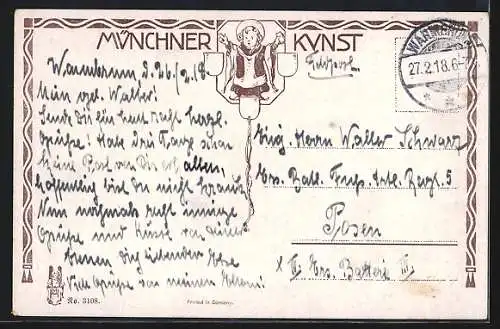 MÜNCHNER KUNST
Feldpost
WARMBRUNN
27.2.18.6-7
Warmbrunn d. 26/2.18.
Mein gel. Walter!
Sende Dir ein heut recht herzl.
Grüße! Habe drei Tage schon
keine Post von Dir erhalten,
hoffentlich bist du nicht krank.
Nun nochmals recht innige
Grüße und Küsse von Deiner
Dich liebenden
Viele Grüße von meinen Eltern!
Herrn Walter Schwarz
Ers. Batl. Fuß. Artl. Regt. 5
Posen
II Ers. Batterie III
No. 3108.
Printed in Germany.